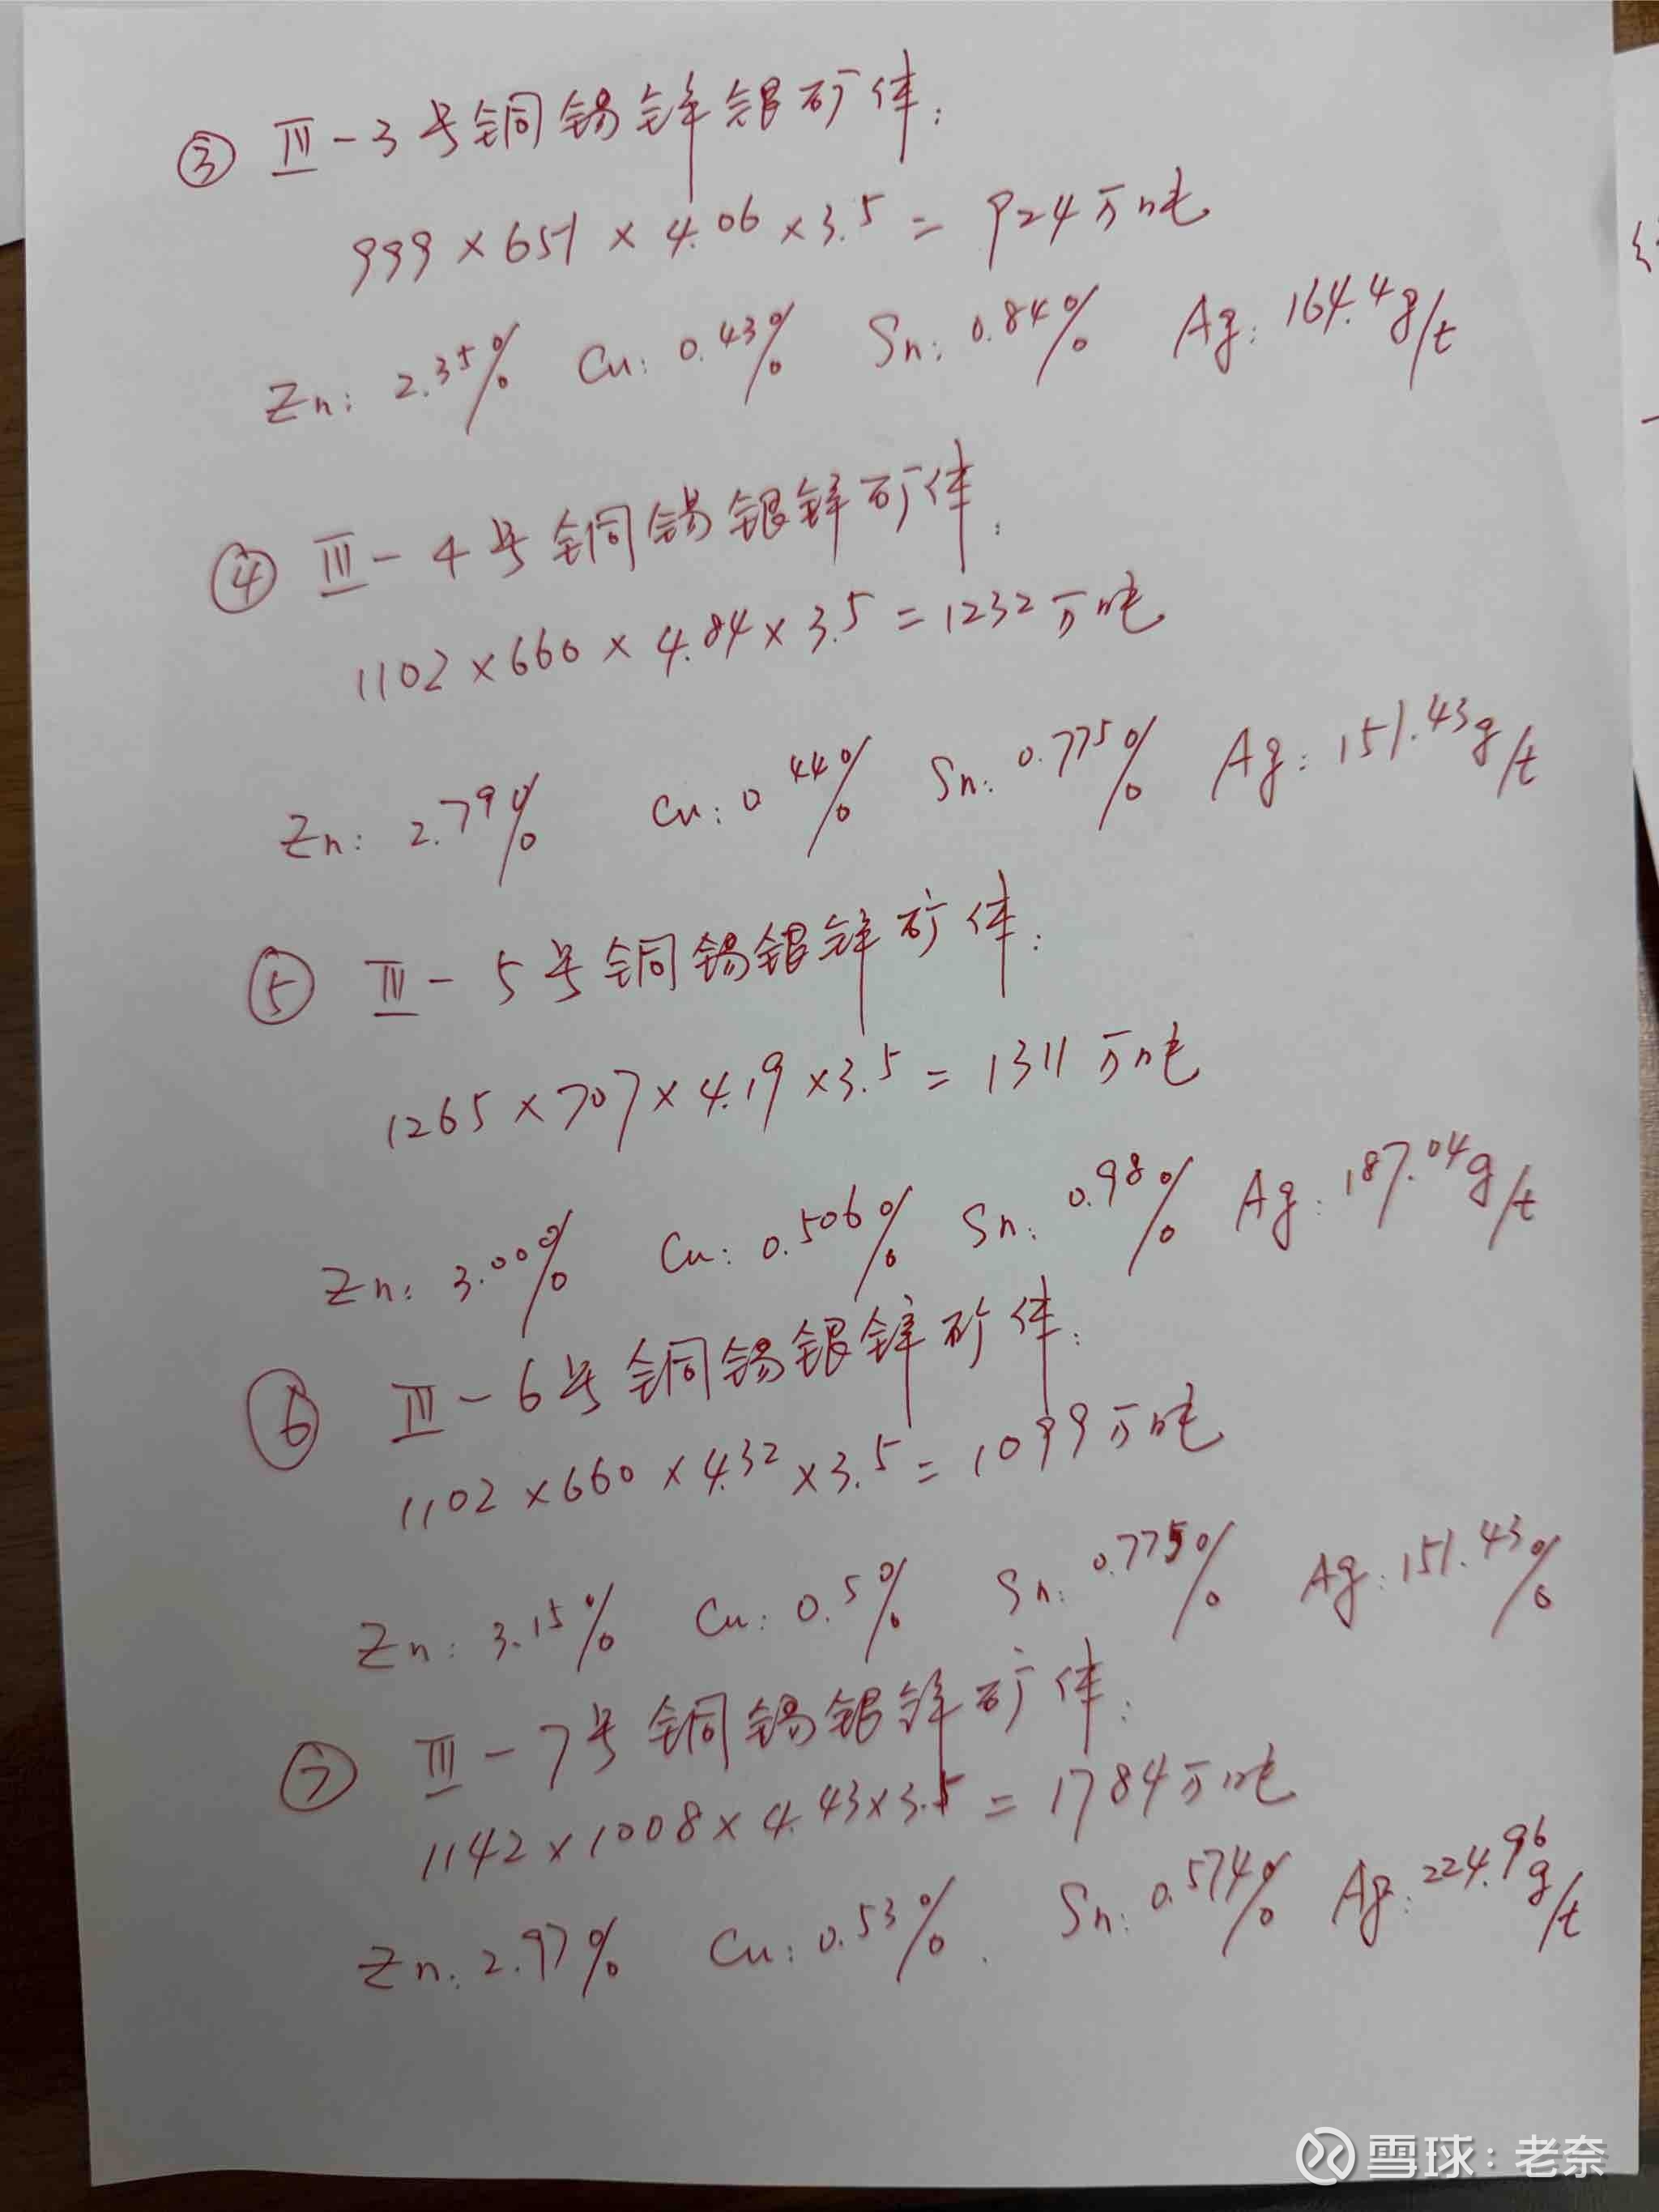 ③ Ⅲ-3号铜锡锌银矿体:
999×651×4.06×3.5=924万吨
Zn: 2.35% Cu: 0.43% Sn: 0.84% Ag: 164.4g/t
④ Ⅲ-4号铜锡银锌矿体:
1102×660×4.84×3.5=1232万吨
Zn: 2.79% Cu: 0.44% Sn: 0.775% Ag: 151.43g/t
⑤ Ⅲ-5号铜锡银锌矿体:
1265×707×4.19×3.5=1311万吨
Zn: 3.00% Cu: 0.506% Sn: 0.98% Ag: 187.04g/t
⑥ Ⅲ-6号铜锡银锌矿体:
1102×660×4.32×3.5=1099万吨
Zn: 3.15% Cu: 0.5% Sn: 0.775% Ag: 151.43%
⑦ Ⅲ-7号铜锡银锌矿体:
1142×1008×4.43×3.5=1784万吨
Zn: 2.97% Cu: 0.53%. Sn: 0.574% Ag: 224.96g/t
雪球：老奈